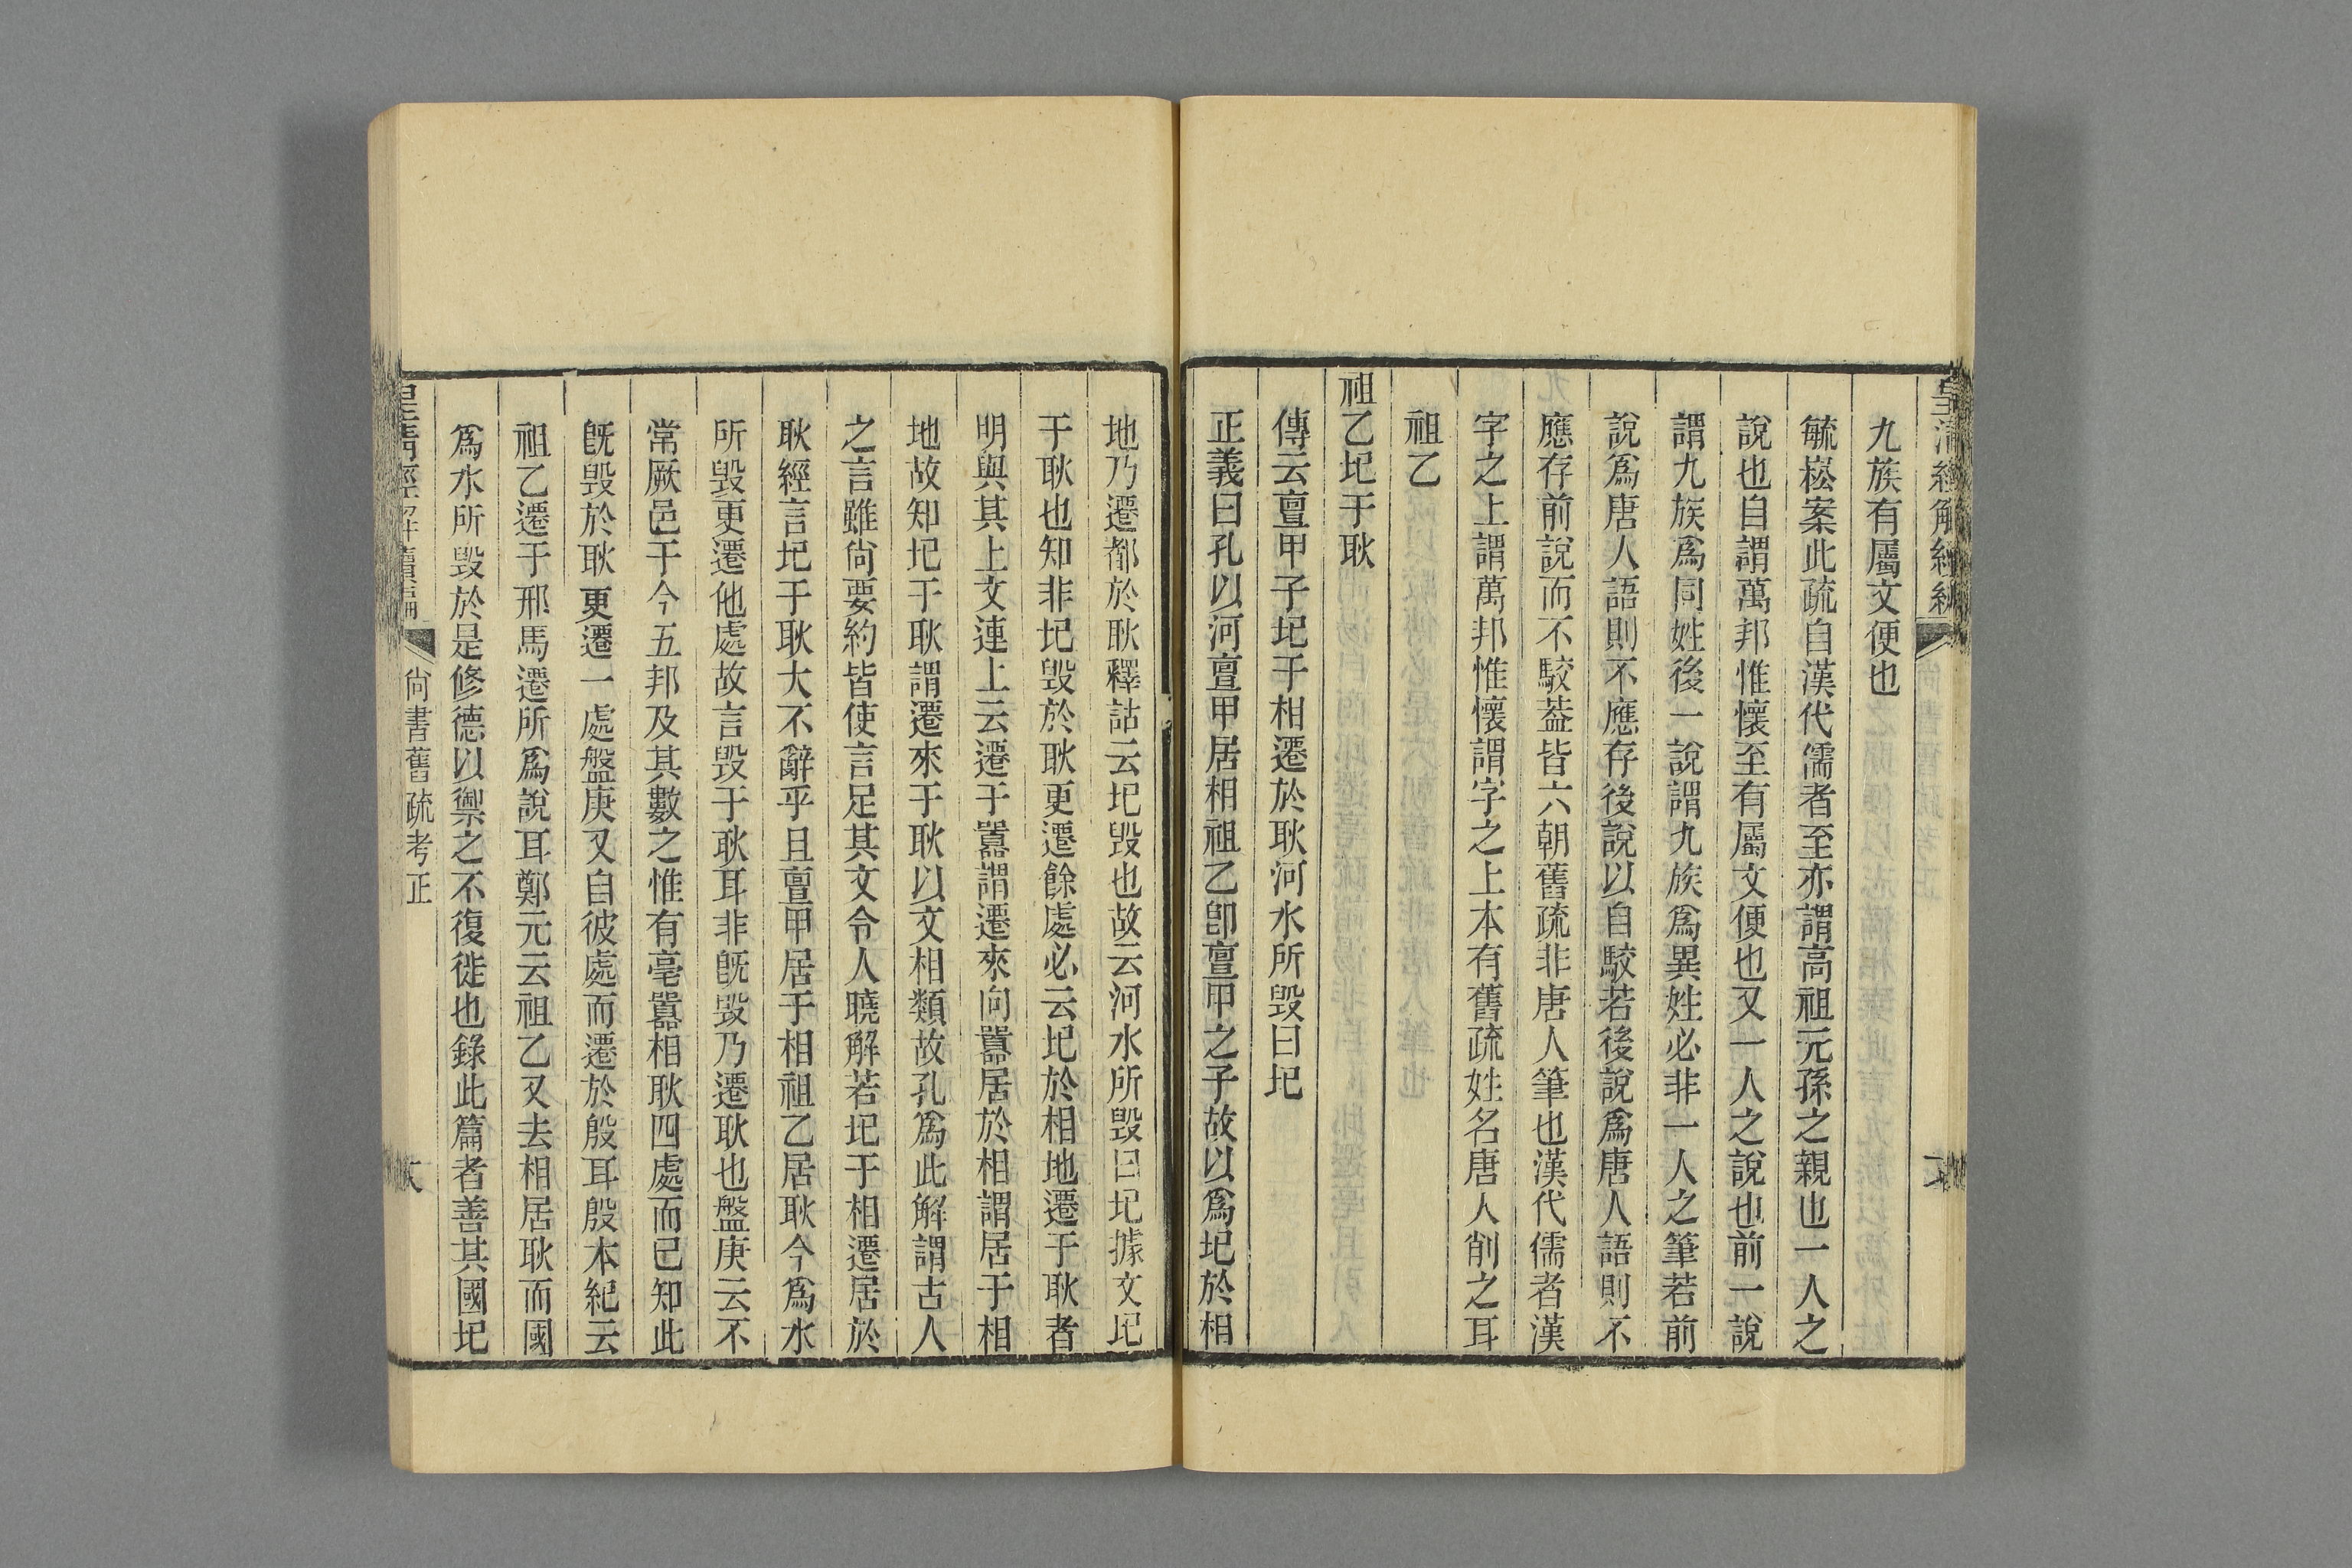 九族有屬文便也
毓崧案此疏自漢代儒者至亦謂高祖元孫之親也一人之
說也自謂萬邦惟懷至有屬文便也又一人之說也前一說
謂九族爲同姓後一說謂九族爲異姓必非一人之筆若前
說爲唐人語則不應存後說以自駮若後說爲唐人語則不
應存前說而不駮葢皆六朝舊疏非唐人筆也漢代儒者漢
字之上謂萬邦惟懷謂字之上本有舊疏姓名唐人削之耳
祖乙
祖乙圯于耿
傳云亶甲子圯于相遷於耿河水所毀曰圯
正義曰孔以河亶甲居相祖乙卽亶甲之子故以爲圯於相
地乃遷都於耿釋詁云圯毀也故云河水所毀曰圯據文圯
于耿也知非圯毀於耿更遷餘處必云圯於相地遷于耿者
明與其上文連上云遷于嚻謂遷來向嚻居於相謂居于相
地故知圯于耿謂遷來于耿以文相類故孔爲此解謂古人
之言雖尙要約皆使言足其文令人曉解若圯于相遷居於
耿經言圯于耿大不辭乎且亶甲居于相祖乙居耿今爲水
所毀更遷他處故言毀于耿耳非旣毀乃遷耿也盤庚云不
常厥邑于今五邦及其數之惟有亳嚻相耿四處而已知此
旣毀於耿更遷一處盤庚又自彼處而遷於殷耳殷本紀云
祖乙遷于邢馬遷所爲說耳鄭元云祖乙又去相居耿而國
爲水所毀於是修德以禦之不復徙也錄此篇者善其國圯
皇清經解續編
尙書舊疏考正